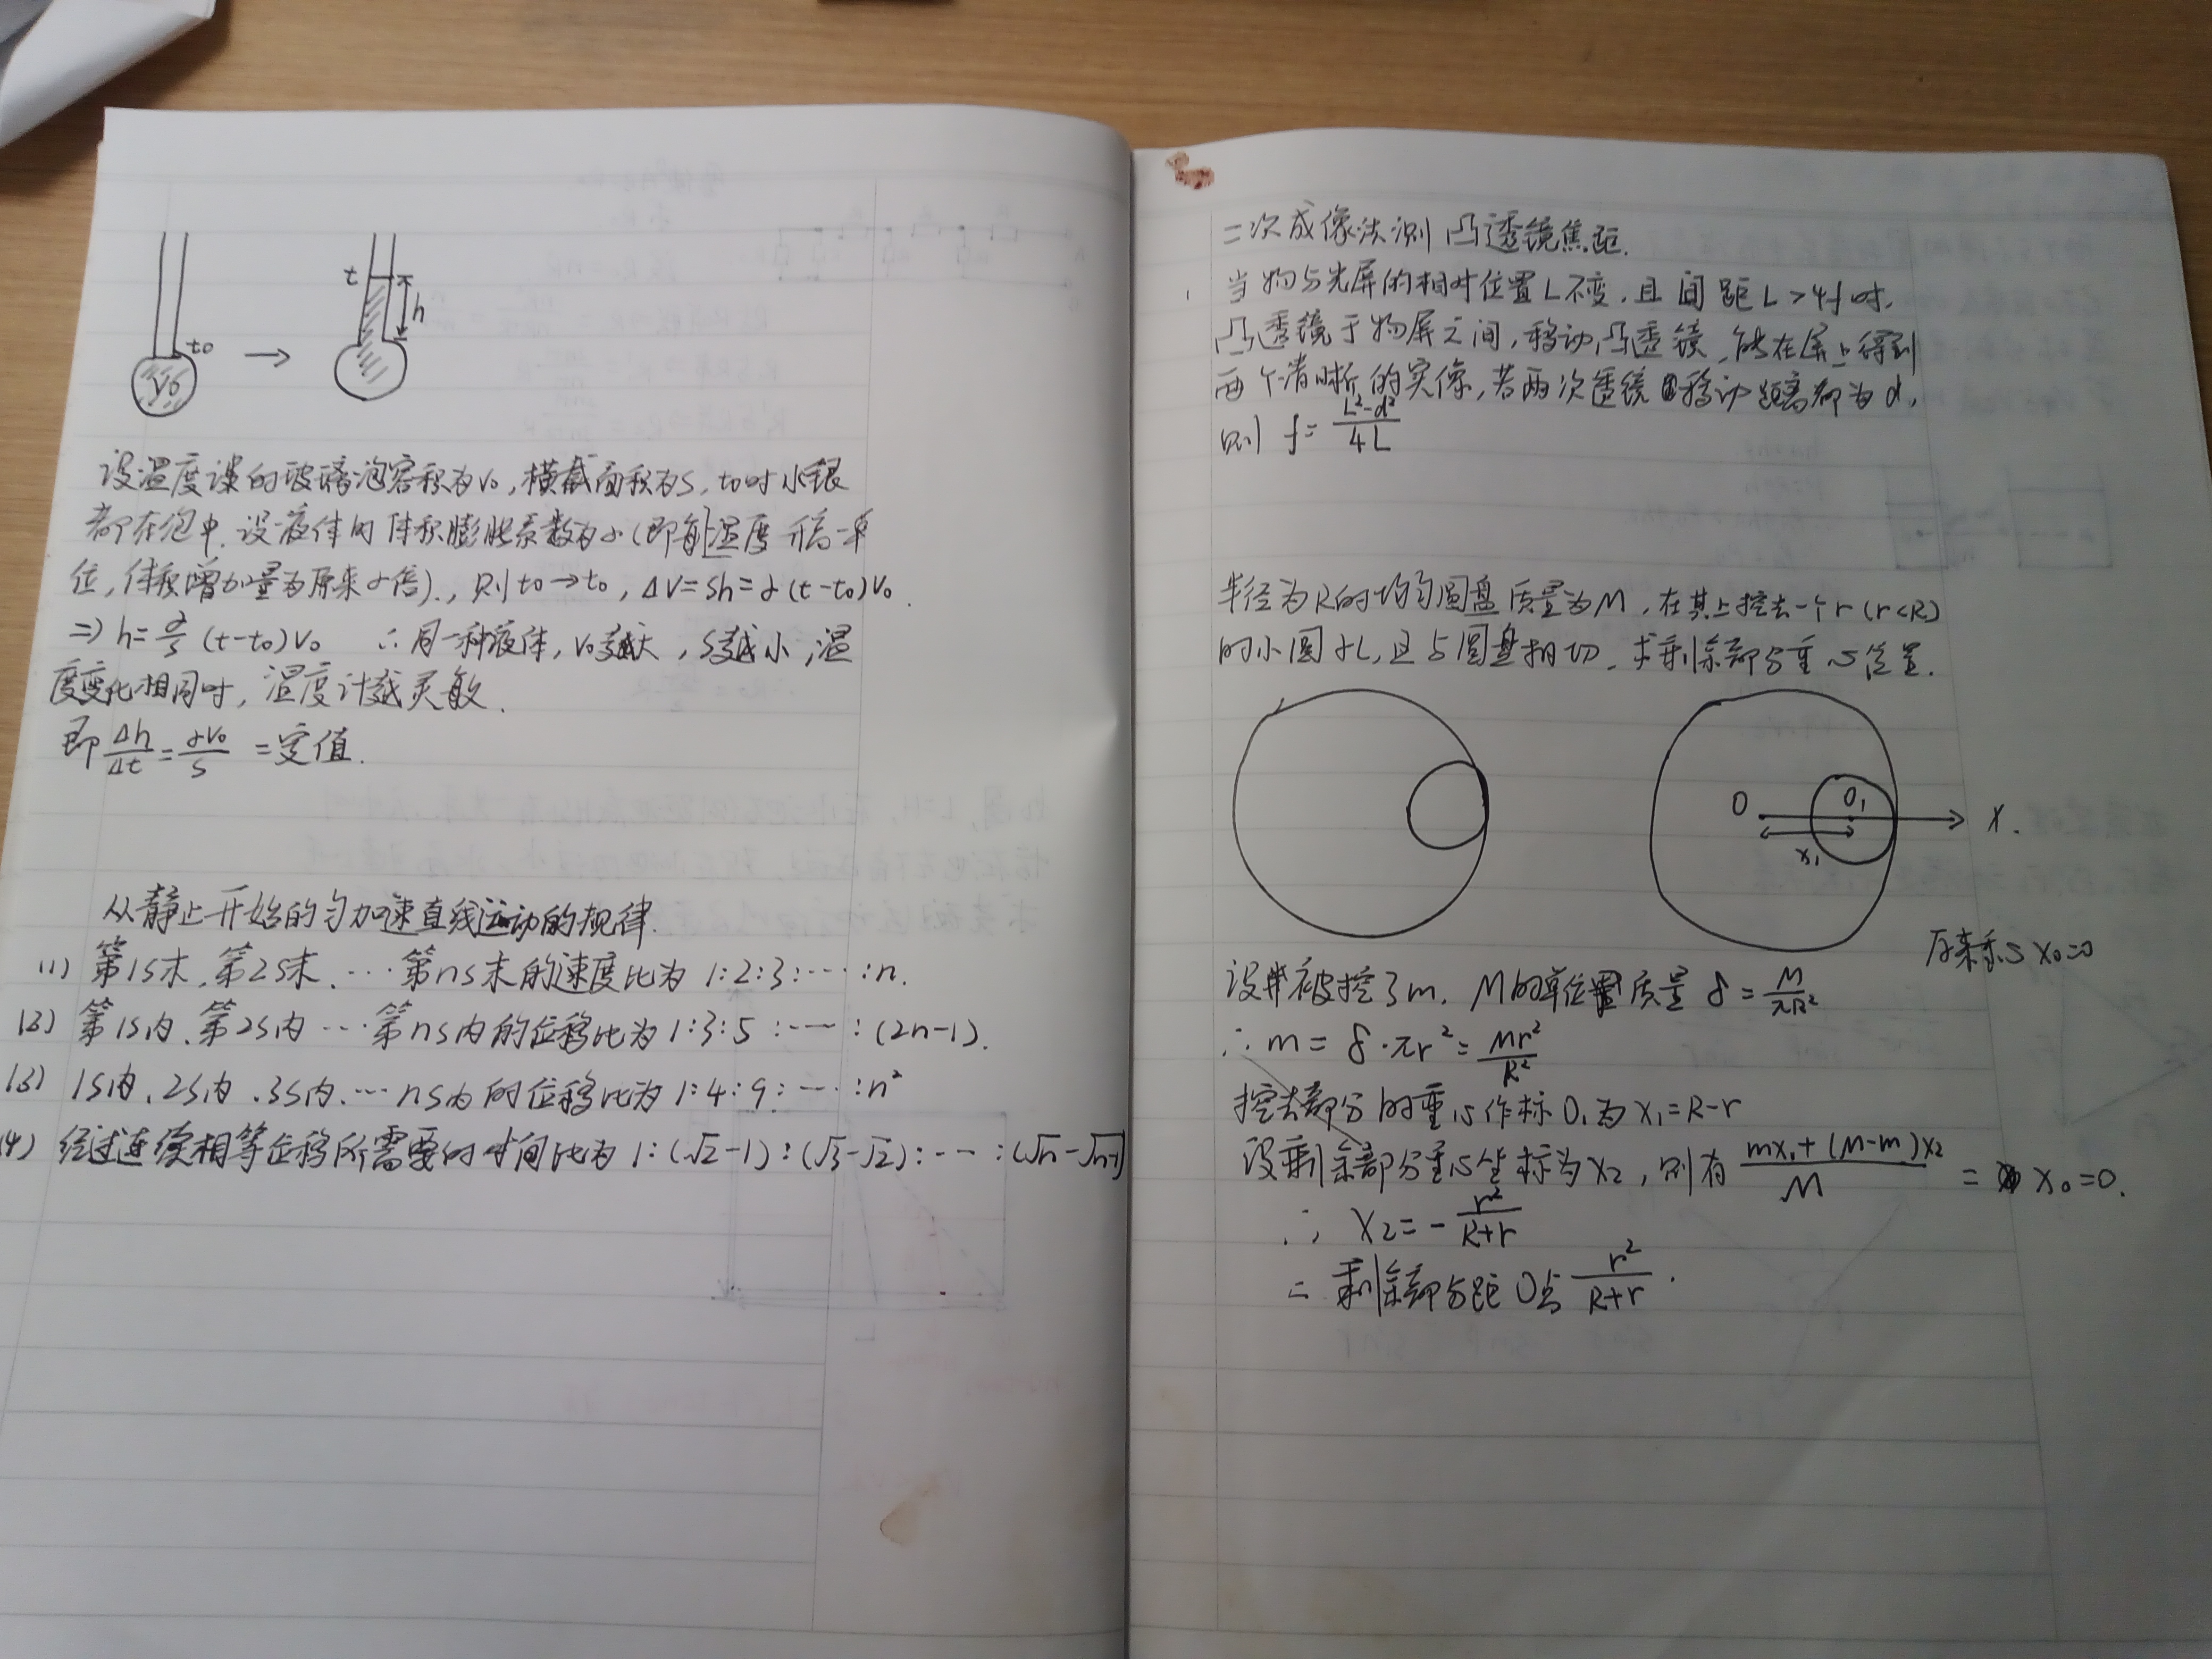 t
h
t0
→
V0
设温度误的玻璃泡容积为V0,横截面积为S,t0时水银
都在泡中.设液体的体积膨胀系数为α(即每温度升高一单
位,体积增加量为原来α倍).,则t0→t0,ΔV=Sh=α(t-t0)V0.
⇒h=α/S(t-t0)V0 ∴同一种液体,V0越大,S越小,温
度变化相同时,温度计越灵敏.
即Δh/Δt=αV0/S=定值.
从静止开始的匀加速直线运动的规律.
(1) 第1s末.第2s末.…第ns末的速度比为1:2:3:…:n.
(2) 第1s内.第2s内…第ns内的位移比为1:3:5:…:(2n-1).
(3) 1s内.2s内.3s内.…ns内的位移比为1:4:9:…:n²
(4) 经过连续相等位移所需要的时间比为1:(√2-1):(√3-√2):…:(√n-√n-1)
二次成像法测凸透镜焦距.
当物与光屏的相对位置L不变.且间距L>4f时.
凸透镜于物屏之间,移动凸透镜,能在屏上得到
两个清晰的实像,若两次透镜移动距离都为d,
则 f=(L²-d²)/4L
半径为R的均匀圆盘质量为M,在其上挖去一个r(r<R)
的小圆孔,且与圆盘相切.求剩余部分重心位置.
O O1 X.
x1
原来重心x0=0
设被挖了m.M的单位质量δ=M/πR²
∴m=δ·πr²=Mr²/R²
挖去部分的重心作标O1为x1=R-r
设剩余部分重心坐标为x2,则有(mx1+(M-m)x2)/M=x0=0.
∴x2=-r²/(R+r)
=剩余部分距O点r²/(R+r).